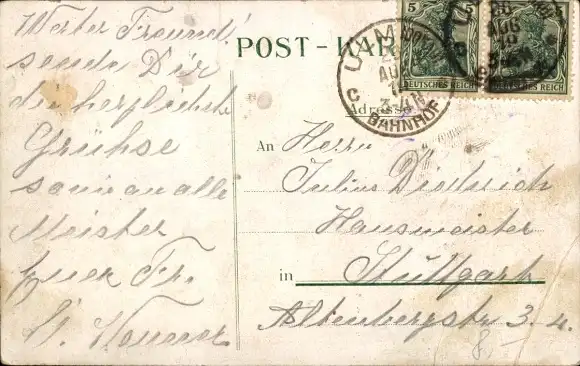 Werter Freund!
sende Dir
die herzlichste
Grühse
sowie an alle
Meister
POST - KAR
Adresse
5
DEUTSCHES REICH
DEUTSCHES REICH
ULM
AUG
BAHNHOF
C
20
AUG
10
An Herrn
Julius Diedrich
Hausmeister
in Stuttgart
Altenbergstr 3-4.
8.